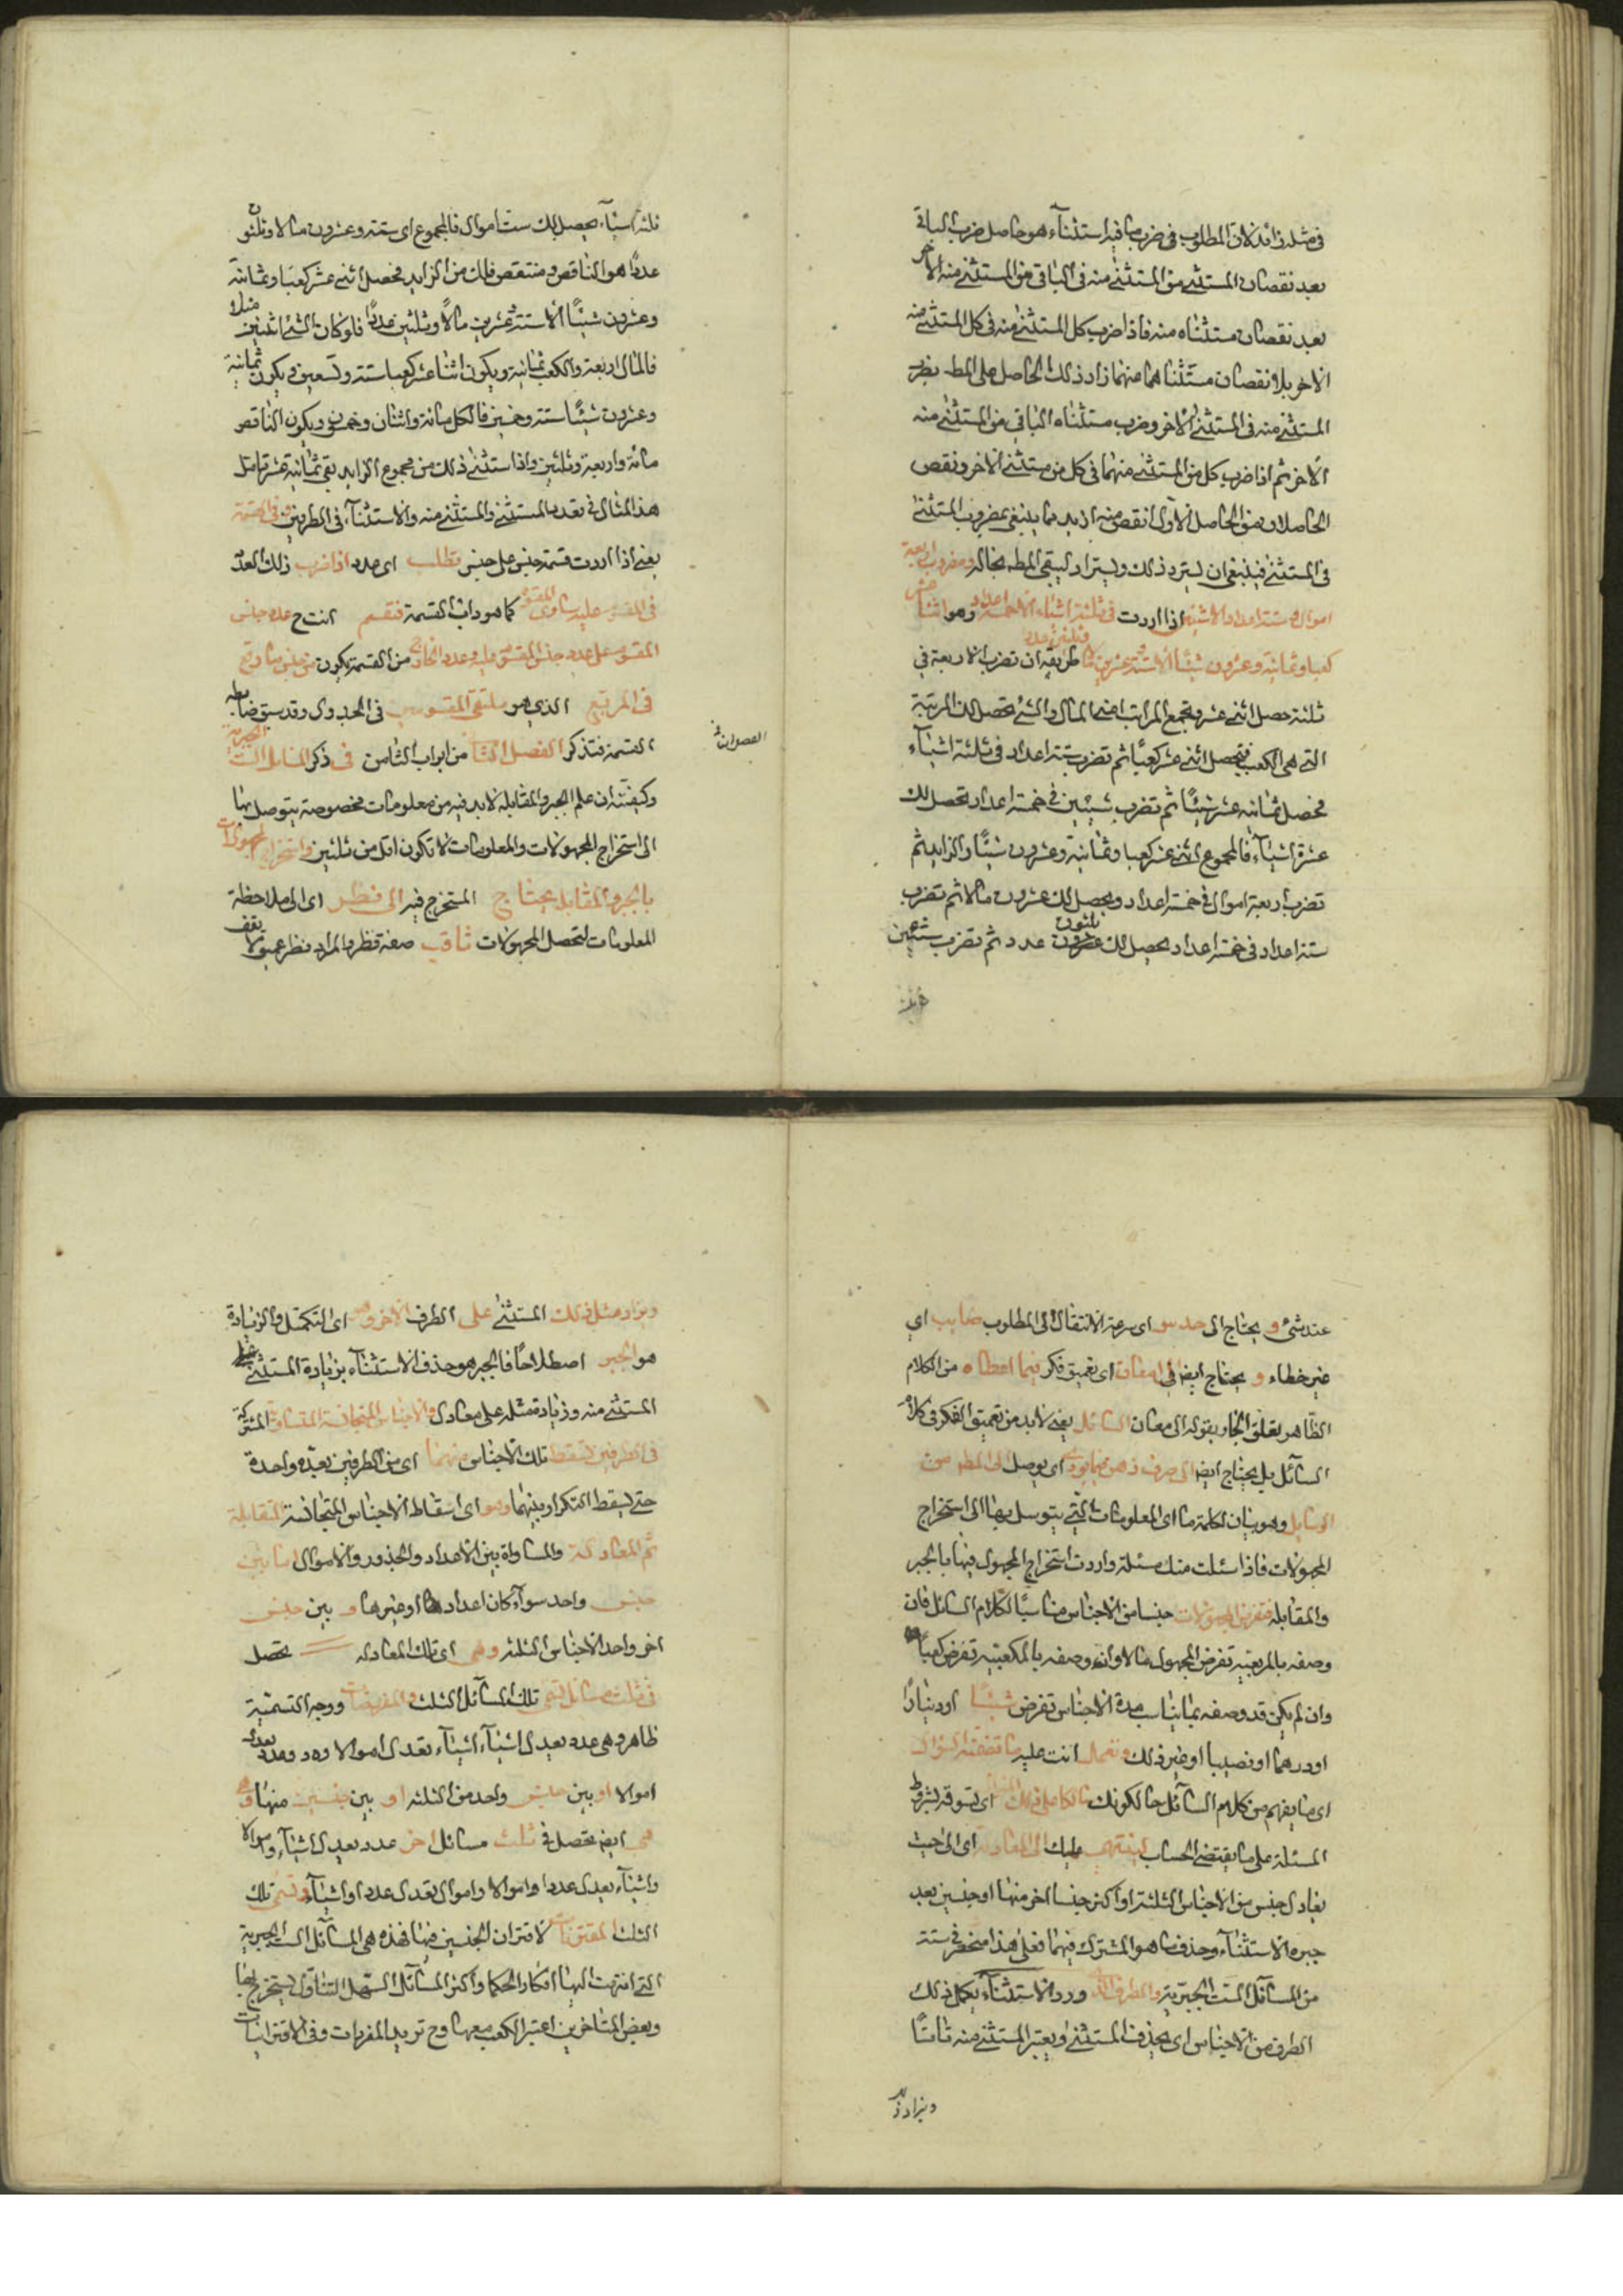 في مثله زائد لان المطلوب في ضرب ما فيه استثناء هو حاصل ضرب الباقي
بعد نقصان المستثنى من المستثنى منه في الباقي من المستثنى منه الاخر
بعد نقصان مستثناه منه فاذا ضرب كل المستثنى منه في كل المستثنى منه
الاخر بلا نقصان مستثناهما منهما زاد ذلك الحاصل على المط بضرب
المستثنى منه في المستثنى الاخر وضرب مستثناه الباقي من المستثنى منه
الاخر ثم اذا ضرب كل من المستثنى منهما في كل من مستثنى الاخر ونقص
الحاصلان من الحاصل الاول انقص منه ازيد مما ينبغي بمضروب المستثنى
في المستثنى فينبغي ان يسترد ذلك ويزاد ليبقى المط بحاله ومضروب اربعة
اموال وستة اعداد الا شيئين اذا اردت في ثلثة اشياء الا خمسة اعداد وهو اثنا عشر
كعبا وثمانية وعشرون شيئا الا ستة وعشرين مالا وثلثين عددا طريقه ان تضرب الاربعة في
ثلثة حصل اثني عشر وتجمع المراتب اعني المال والشئ تحصل لك المرتبة
التي هي الكعب فيحصل اثني عشر كعبا ثم تضرب ستة اعداد في ثلثة اشياء
فحصل ثمانية عشر شيئا ثم تضرب شيئين في خمسة اعداد تحصل لك
عشرة اشياء فالمجموع اثني عشر كعبا وثمانية وعشرون شيئا والزايد ثم
تضرب اربعة اموال في خمسة اعداد ويحصل لك عشرون مالا ثم تضرب
ستة اعداد في خمسة اعداد يحصل لك ثلثون عدد ثم تضرب شيئين
في ثلثة
ثلثة اشياء يحصل لك ستة اموال فالمجموع اي ستة وعشرون مالا وثلثون
عددا هو الناقص فتنقص ذلك من الزايد فحصل اثني عشر كعبا وثمانية
وعشرون شيئا الا ستة وعشرين مالا وثلثين عددا فلو كان الشئ اثنين مثلا
فالمال اربعة والكعب ثمانية ويكون اثنا عشر كعبا ستة وتسعين ويكون ثمانية
وعشرون شيئا ستة وخمسين فالكل مائة واثنان وخمسون ويكون الناقص
مائة واربعة وثلثين واذا استثنى ذلك من مجموع الزايد بقي ثمانية عشر تامل
هذا المثال في تعدد المستثنى والمستثنى منه والاستثناء في الطرفين وفي القسمة
يعني اذا اردت قسمة جنس على جنس تطلب اي عدد اذا ضرب ذلك العدد
في المقسوم عليه ساوى المقسوم كما هو داب القسمة فتقسم انت ح عدد جنس
المقسوم على عدد جنس المقسوم عليه وعدد الخارج من القسمة يكون من جنس ما وقع
في المربع الذي هو ملتقى المقسومين في الجدول وقد سبق ضابطة
القسمة فتذكر الفصل الثاني من ابواب الثامن في ذكر المسائل الست الجبرية
وكيفيته ان علم الجبر والمقابلة لا بد فيه من معلومات مخصوصة يتوصل بها
الى استخراج المجهولات والمعلومات لا تكون اقل من ثلثين واستخراج المجهولات
بالجبر والمقابلة يحتاج المستخرج فيه الى نظر اي الى ملاحظة
المعلومات لتحصل المجهولات ثاقب صفة نظر والمراد نظر عميق لا يقف
الفصل الثاني
عند شئ و يحتاج الى حدس اي سرعة الانتقال الى المطلوب صايب اي
غير خطاء و يحتاج ايضا الى امعان اي تعميق فكر فيما اعطاه من الكلام
الظاهر تعلق الجار بقوله الى معان السائل يعني لا بد من تعميق الفكر في كلام
السائل بل يحتاج ايضا الى صرف ذهن فيما يؤدي اي يوصل الى المط من
الوسايل وهو بيان لكلمة ما اي المعلومات التي يتوسل بها الى استخراج
المجهولات فاذا سئلت منك مسئلة واردت استخراج المجهول فيها بالجبر
والمقابلة فتفرض المجهولات جنسا من الاجناس مناسبا لكلام السائل فان
وصفه بالمربعية تفرض المجهول مالا وان وصفه بالمكعبية تفرض كعبا
وان لم يكن قد وصفه بما يناسب هذه الاجناس تفرض شيئا او دينارا
او درهما او نصيبا او غير ذلك وتعمل انت عليه ما تضمنه السؤال
اي ما يفهم من كلام السائل حالكونك سالكا على ذلك المنوال اي تسوقه بشروط
المسئلة على ما يقتضي الحساب لينتهي عملك الى المعادلة اي الى حيث
يعادل جنس من الاجناس الثلثة او اكثر جنسا اخر منها او جنسين بعد
جبره الاستثناء وحذف ما هو المشترك فيهما فعلى هذا منحصر في ستة
من المسائل الست الجبرية والطرف الذي ورد الاستثناء يكمل ذلك
الطرف من الاجناس اي يحذف المستثنى ويعتبر المستثنى منه تاما
ويزاد
ويزاد مثل ذلك المستثنى على الطرف الاخر وهو اي التكمل والزيادة
هو الجبر اصطلاحا فالجبر هو حذف الاستثناء بزيادة المستثنى على
المستثنى منه وزيادة مثله على معادل والاجناس المتجانسة المتساوية المشتركة
في الطرفين تسقط تلك الاجناس منهما اي من الطرفين بعدة واحدة
حتى يسقط التكرار بينهما وهو اي اسقاط الاجناس المتجانسة المقابلة
ثم المعادلة والمساواة بين الاعداد والجذور والاموال اما بين
جنس واحد سواء كان اعدادها او غيرها و بين جنس
اخر واحد الاجناس الثلثة وهي اي تلك المعادلة تحصل
في ثلث مسائل تسمى تلك المسائل الثلث والمفردات ووجه التسمية
ظاهر وهي عدد يعدل اشياء اشياء تعدل اموالا وعدد يعدل
اموالا او بين جنس واحد من الثلثة او بين جنسين منها و
هي ايضا تحصل في ثلث مسائل اخر عدد يعدل اشياء واموالا
واشياء يعدل عددا واموالا واموال تعدل عددا واشياء وتسمى تلك
الثلث المقترنات لاقتران الجنسين فيها فهذه هي المسائل الست الجبرية
التي انتهت اليها افكار الحكما واكثر المسائل السهل التناول يستخرج بها
وبعض المتاخرين اعتبر الكعب معها وح تزيد المفردات وفي الاقترانيات